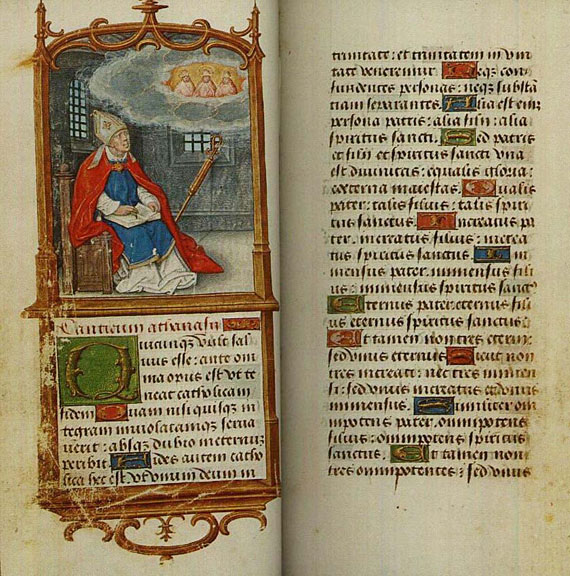 Canticum athanasii
Quicunqz vult sal
uus esse: ante om
nia opus est vt te
neat catholicam
fidem Quam nisi quisqz in
tegram inuiolatamqz serua
uerit: absqz dubio in eternuz
peribit Fides autem catho
lica hec est. vt vnum deum in
trinitate: et trinitatem in vni
tate veneremur. Neqz con
fundentes personas: neqz substā
tiam separantes. Alia est eniz
persona patris: alia filii: alia
spiritus sancti. Sed patris
et filii et spiritus sancti vna
est diuinitas: equalis gloria:
coeterna maiestas. Qualis
pater: talis filius: talis spiri
tus sanctus. Increatus pa
ter. increatus filius: increa
tus spiritus sanctus. Im
mensus pater. immensus fili
us: immensus spiritus sanct9
Eternus pater. eternus fili
us eternus spiritus sanctus
Et tamen non tres eterni:
sed vnus eternus Sicut non
tres increati: nec tres immen
si: sed vnus increatus et vnus
immensus. Similiter om
nipotens pater. omnipotens
filius: omnipotens spiritus
sanctus. Et tamen non
tres omnipotentes: sed vnus